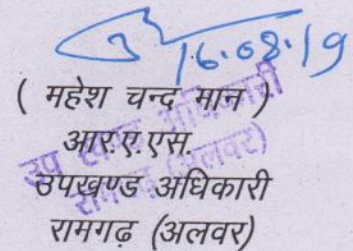 16.08.19
( महेश चन्द मान )
आर.ए.एस.
उपखण्ड अधिकारी
रामगढ़ (अलवर)
उप खण्ड अधिकारी
रामगढ़ (अलवर)